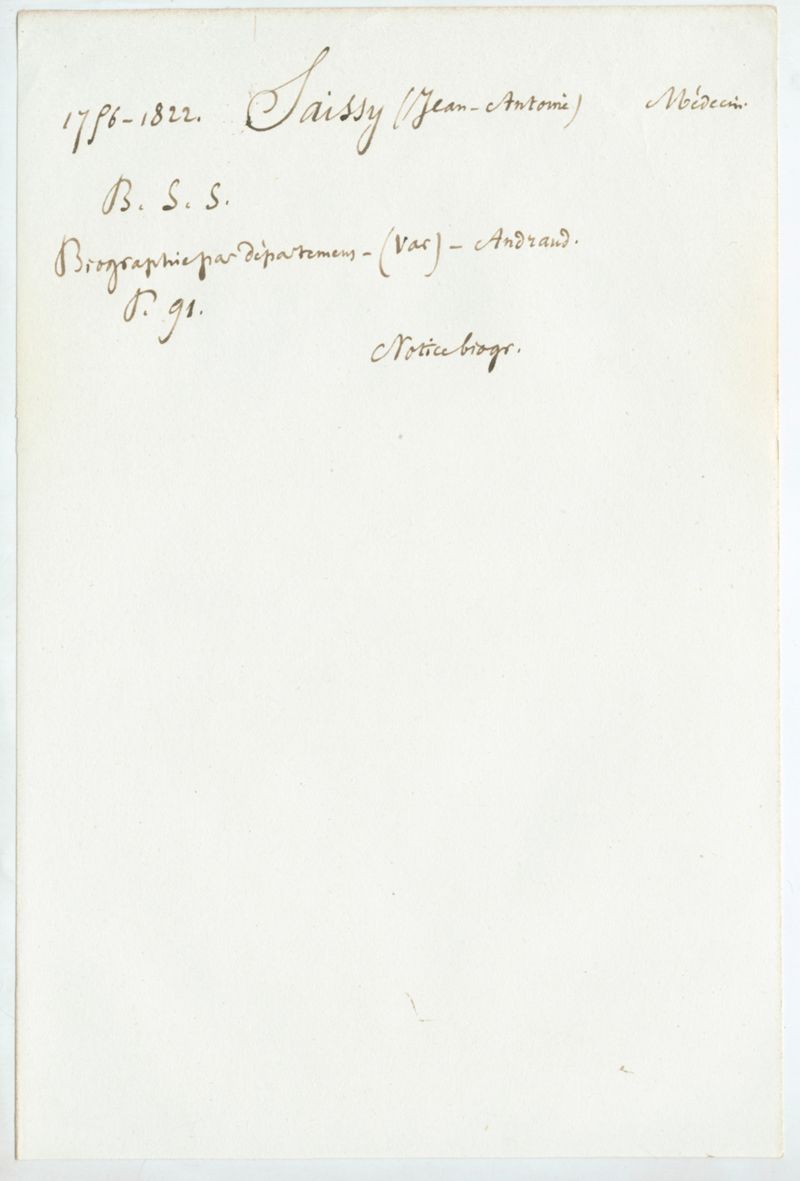 1756-1822. Saissy (Jean-Antoine) Médecin.
B. S. S.
Biographie par départemens - (Var) - Andraud.
P. 91.
Notice biogr.